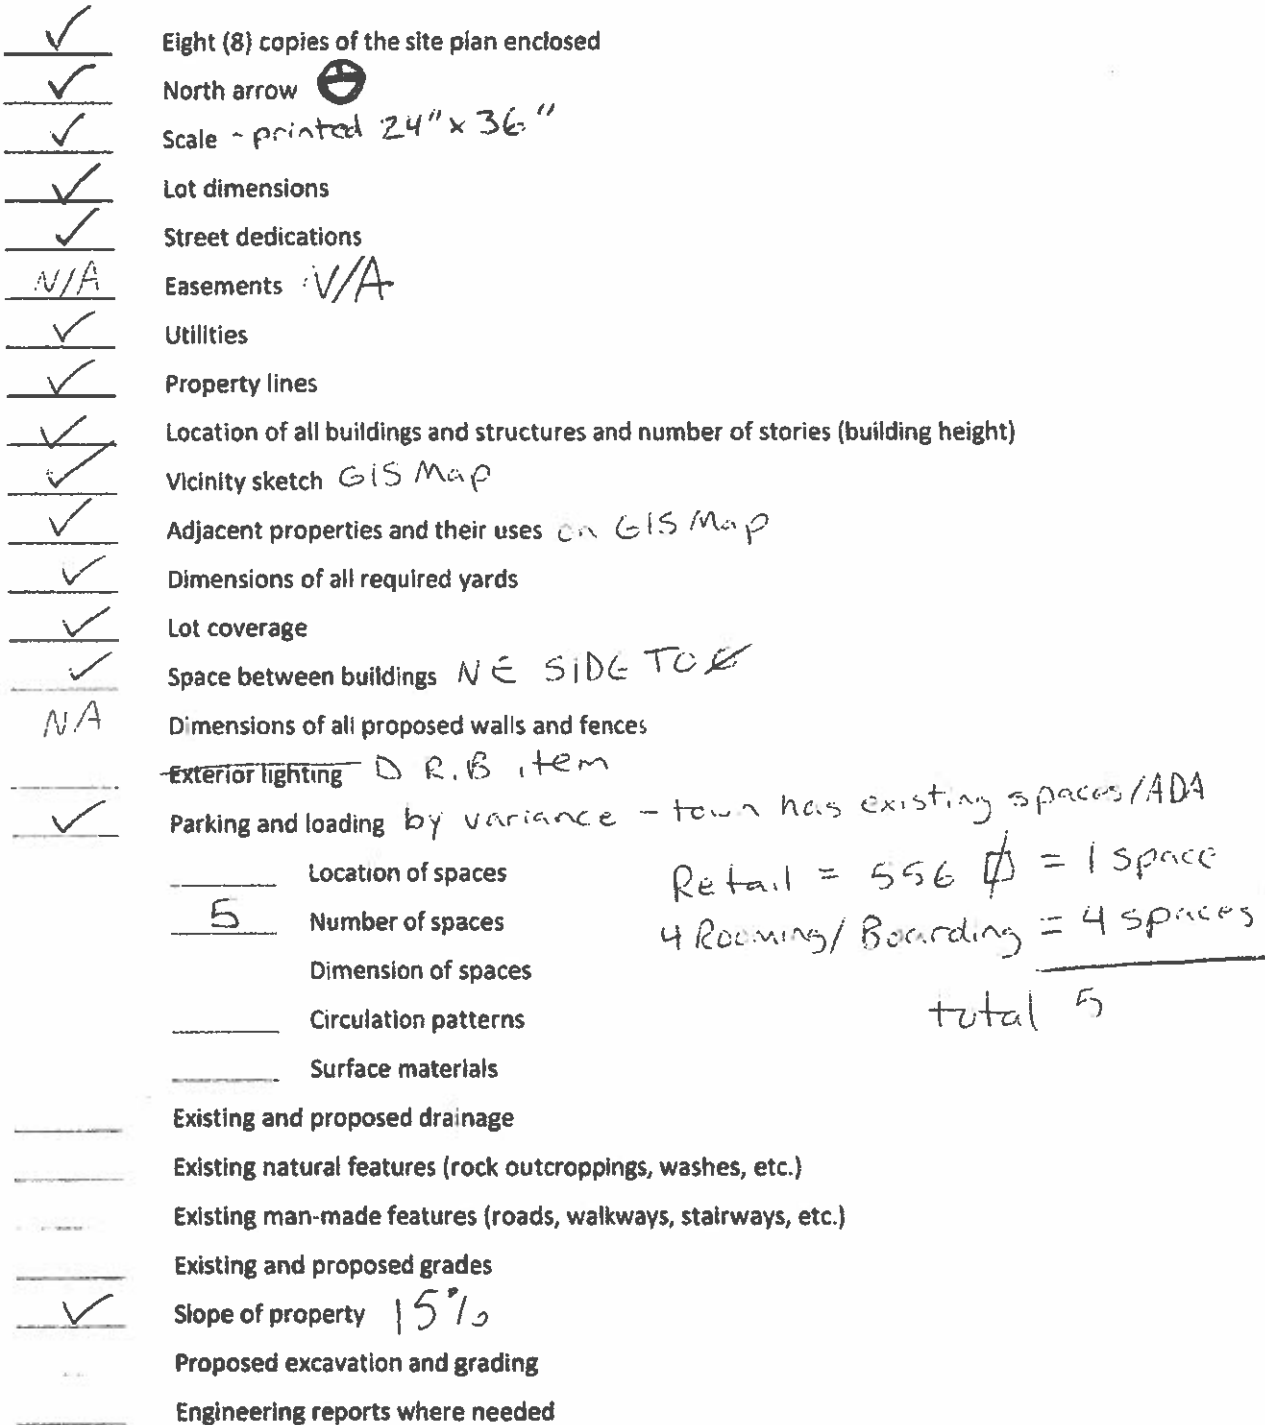 ✓ Eight (8) copies of the site plan enclosed
✓ North arrow
✓ Scale - printed 24" x 36"
✓ Lot dimensions
✓ Street dedications
N/A Easements N/A
✓ Utilities
✓ Property lines
✓ Location of all buildings and structures and number of stories (building height)
✓ Vicinity sketch GIS Map
✓ Adjacent properties and their uses on GIS Map
✓ Dimensions of all required yards
✓ Lot coverage
✓ Space between buildings NE SIDE TO
NA Dimensions of all proposed walls and fences
Exterior lighting D R.B item
✓ Parking and loading by variance - town has existing spaces/ADA
Location of spaces
Retail = 556 = 1 space
5 Number of spaces
4 Rooming/Boarding = 4 spaces
Dimension of spaces
total 5
Circulation patterns
Surface materials
Existing and proposed drainage
Existing natural features (rock outcroppings, washes, etc.)
Existing man-made features (roads, walkways, stairways, etc.)
Existing and proposed grades
✓ Slope of property 15%
Proposed excavation and grading
Engineering reports where needed